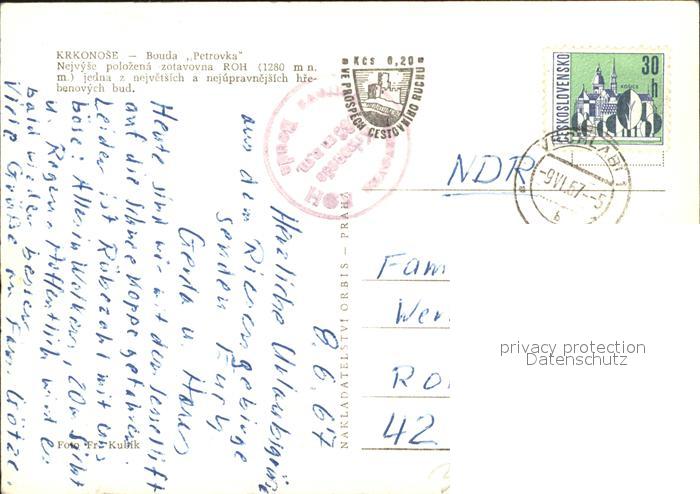 KRKONOŠE — Bouda „Petrovka"
Nejvýše položená zotavovna ROH (1280 m n.
m.) jedna z největších a nejúpravnějších hře-
benových bud.
Kčs 0,20
VE PROSPĚCH CESTOVNÍHO RUCHU
ČESKOSLOVENSKO
30
h
KOŠICE
VRCHLABÍ 1
-9.VI.67-5
6
ROH
Bouda
NDR
Fam
Wer
Ro
42
privacy protection
Datenschutz
NAKLADATELSTVÍ ORBIS — PRAHA
8.6.67
Herzliche Urlaubsgrüße
aus dem Riesengebirge
senden Euch
Gerda u. Hans
Heute sind wir mit dem Sessellift
auf die Schneekoppe gefahren.
Leider ist Rübezahl mit uns
böse: Alles in Wolken, 20 m Sicht
u. Regen. Hoffentlich wird es
bald wieder besser.
Viele Grüße an Fam. Götze.
Foto Fr. Kubík